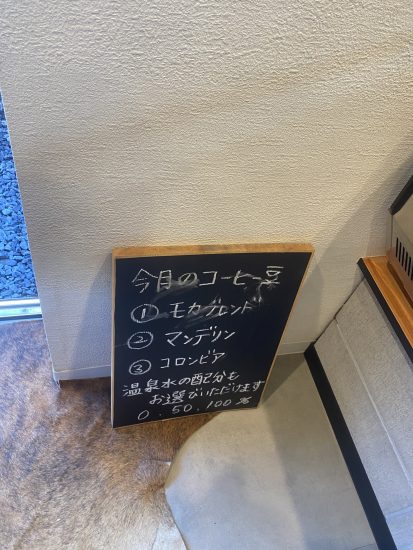 今月のコーヒー豆
① モカブレンド
② マンデリン
③ コロンビア
温泉水の配分も
お選びいただけます
0.50.100%